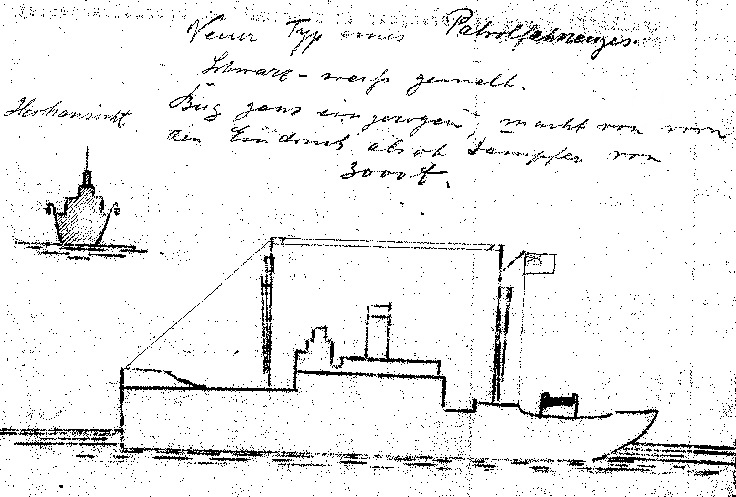 Neuer Typ eines Patrolfahrzeuges
Schwarz-weiß gemalt.
Heckansicht
Bug ganz eingezogen, macht von vorn
den Eindruck als ob Dampfer von
3000 t.